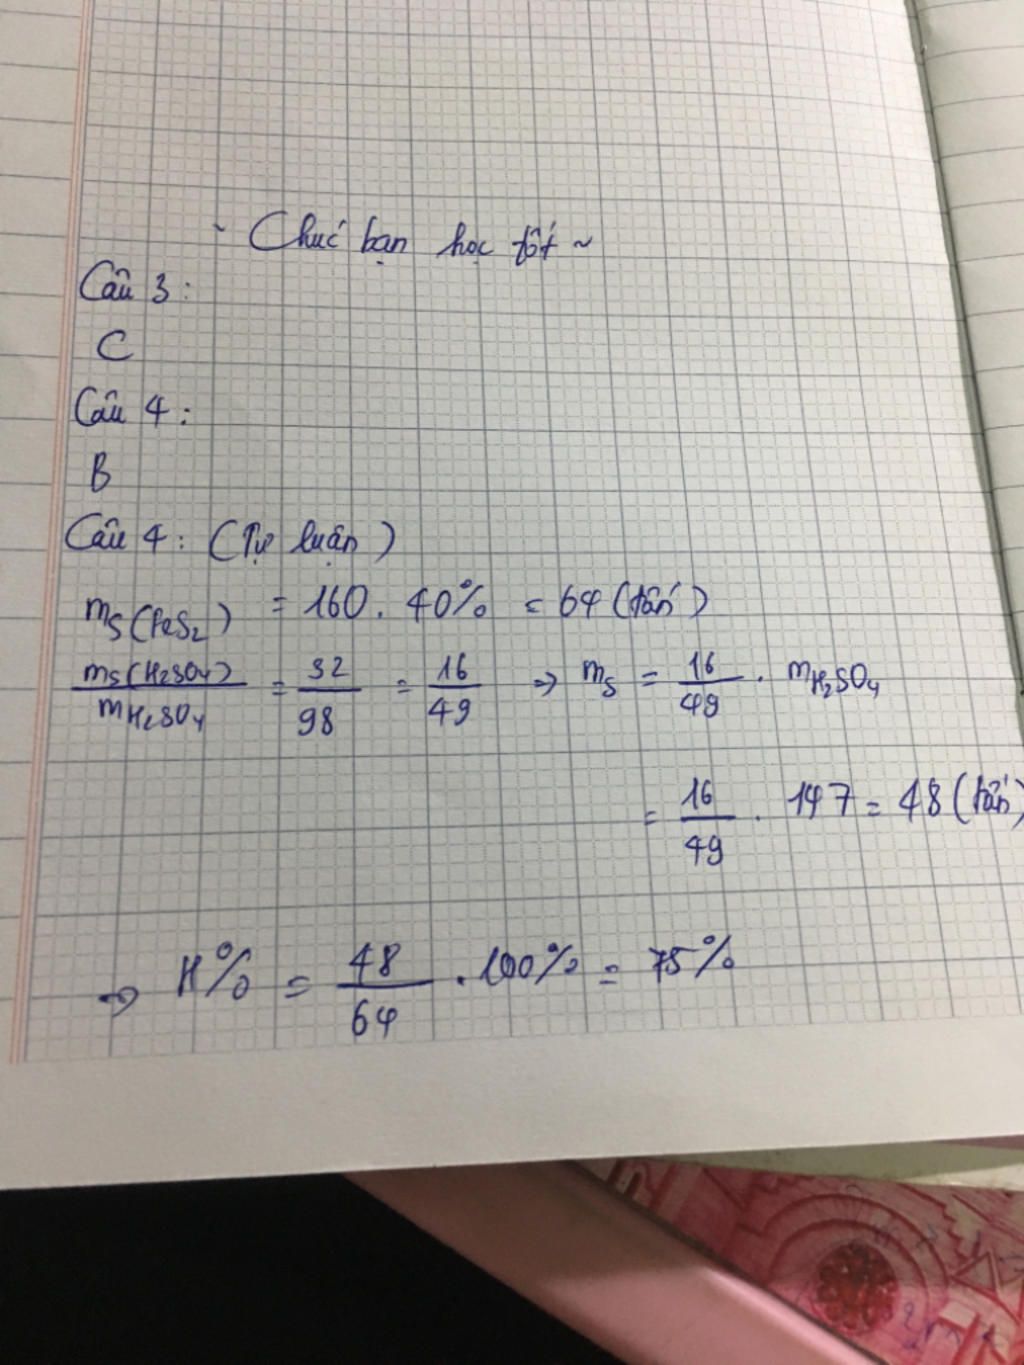 ~ Chúc bạn học tốt ~
Câu 3 :
C
Câu 4 :
B
Câu 4 : (Tự luận)
mS(FeS2) = 160 . 40% = 64 (tấn)
mS(H2SO4) / mH2SO4 = 32/98 = 16/49 => mS = 16/49 . mH2SO4
= 16/49 . 147 = 48 (tấn)
=> H% = 48/64 . 100% = 75%